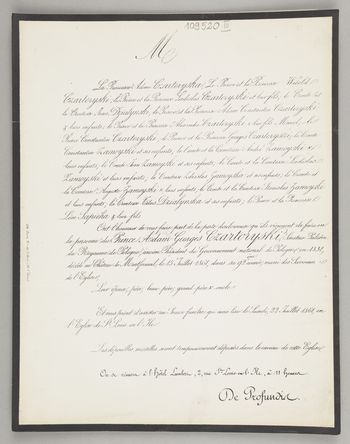 109520 III
M
La Princesse Adam Czartoryska, Le Prince et la Princesse Witold
Czartoryski, le Prince et la Princesse Ladislas Czartoryski et leur fils, le Comte et
la Comtesse Jean Działyński, le Prince et la Princesse Adam Constantin Czartoryski
& leurs enfants, le Prince et la Princesse Alexandre Czartoryski & leur fils Marcel, le
Prince Constantin Czartoryski, le Prince et la Princesse Georges Czartoryski, le Comte
Constantin Zamoyski et ses enfants, le Comte et la Comtesse André Zamoyski &
leurs enfants, le Comte Jean Zamoyski et ses enfants, le Comte et la Comtesse Ladislas
Zamoyski et leurs enfants, le Comte Zdislas Zamoyski et ses enfants, le Comte et
la Comtesse Auguste Zamoyski & leurs enfants, le Comte et la Comtesse Stanislas Zamoyski
et leurs enfants, le Comte Titus Działyński et ses enfants, le Prince et la Princesse
Léon Sapieha & leur fils
Ont l'honneur de vous faire part de la perte douloureuse qu'ils viennent de faire en
la personne du Prince Adam Georges Czartoryski, Sénateur Palatin
du Royaume de Pologne, ancien Président du Gouvernement national de Pologne en 1831,
décédé au Château de Montfermeil, le 15 Juillet 1861, dans sa 92ème année, muni des Sacremens
de l'Eglise,
Leur époux, père, beau père, grand père & oncle.
Et vous prient d'assister au Service funèbre qui aura lieu le Lundi, 22 Juillet 1861, en
l'Eglise de St Louis en l'Ile.
Les dépouilles mortelles seront temporairement déposées dans le caveau de cette Eglise.
On se réunira à l'hôtel Lambert, 2, rue St Louis en l'Ile, à 11 heures
De Profundis